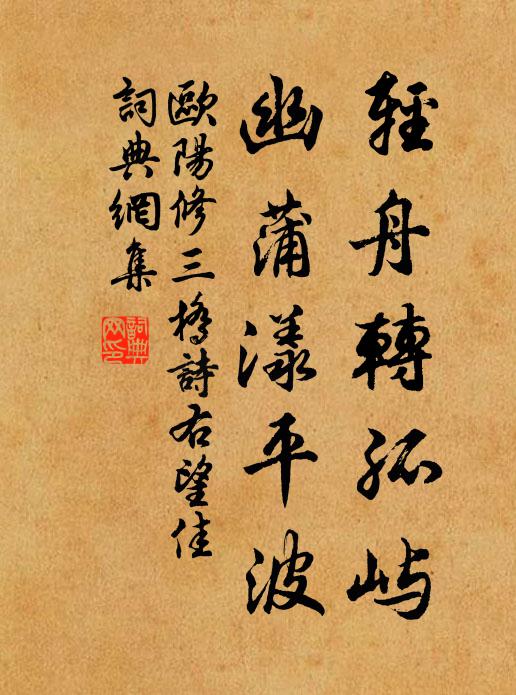 輕舟轉孤嶼
幽蒲漾平波
歐陽修三橋詩右望佳
詞典網集
詞典網印